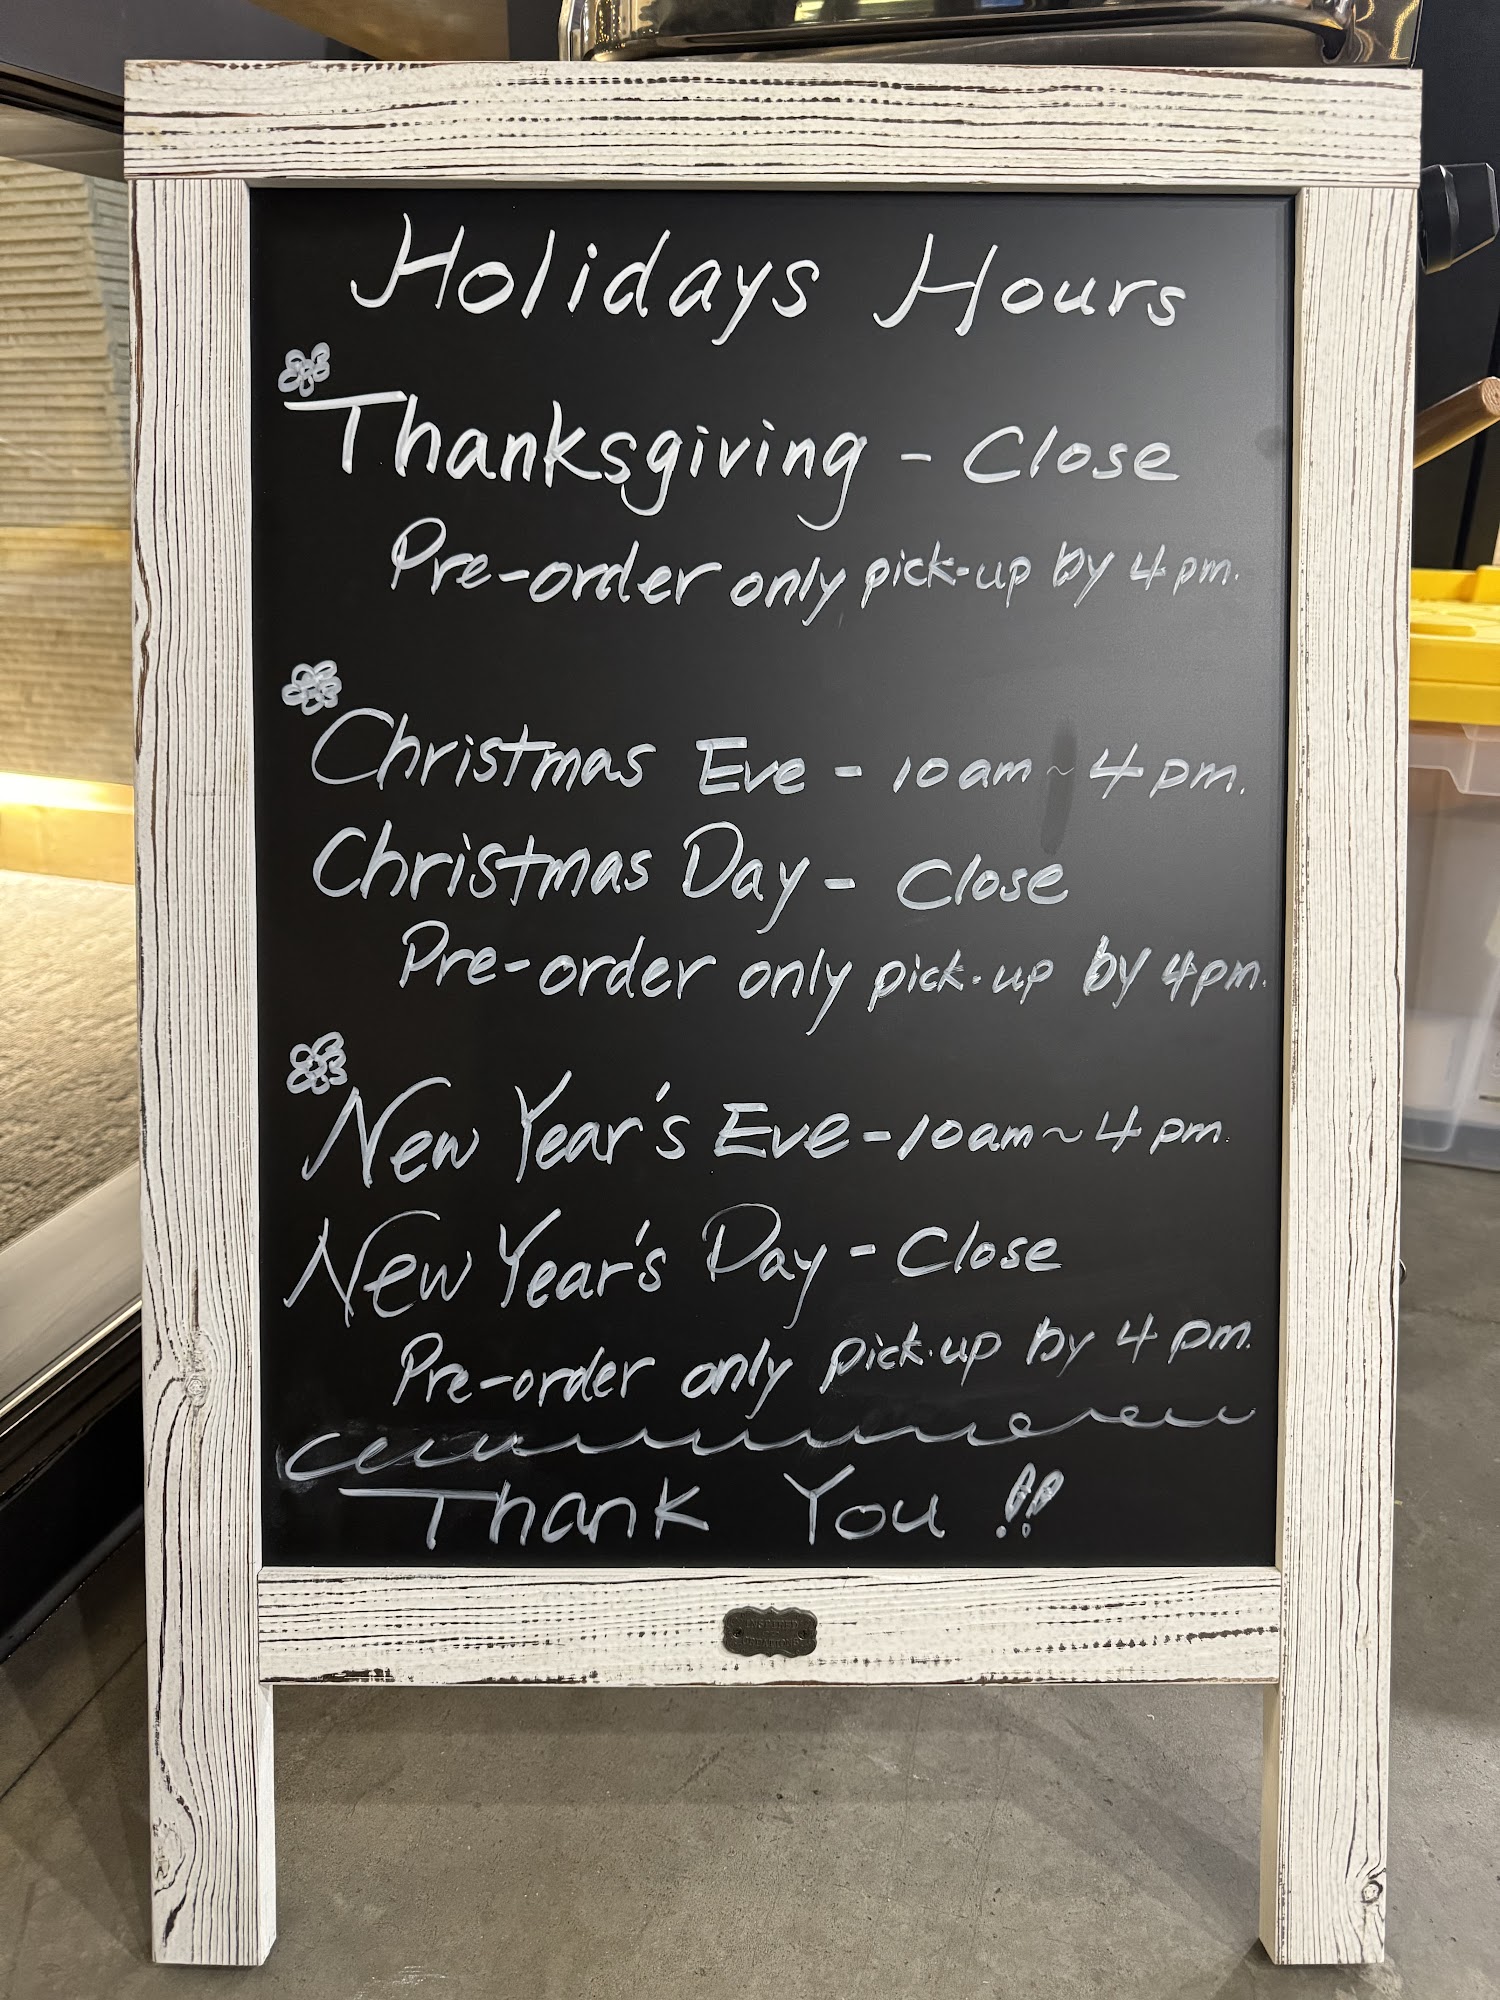 Holidays Hours
Thanksgiving - Close
Pre-order only pick-up by 4pm.
Christmas Eve - 10am ~ 4pm.
Christmas Day - Close
Pre-order only pick-up by 4pm.
New Year's Eve - 10am ~ 4pm.
New Year's Day - Close
Pre-order only pick-up by 4pm.
Thank You !!
INSPIRED
CREATIONS